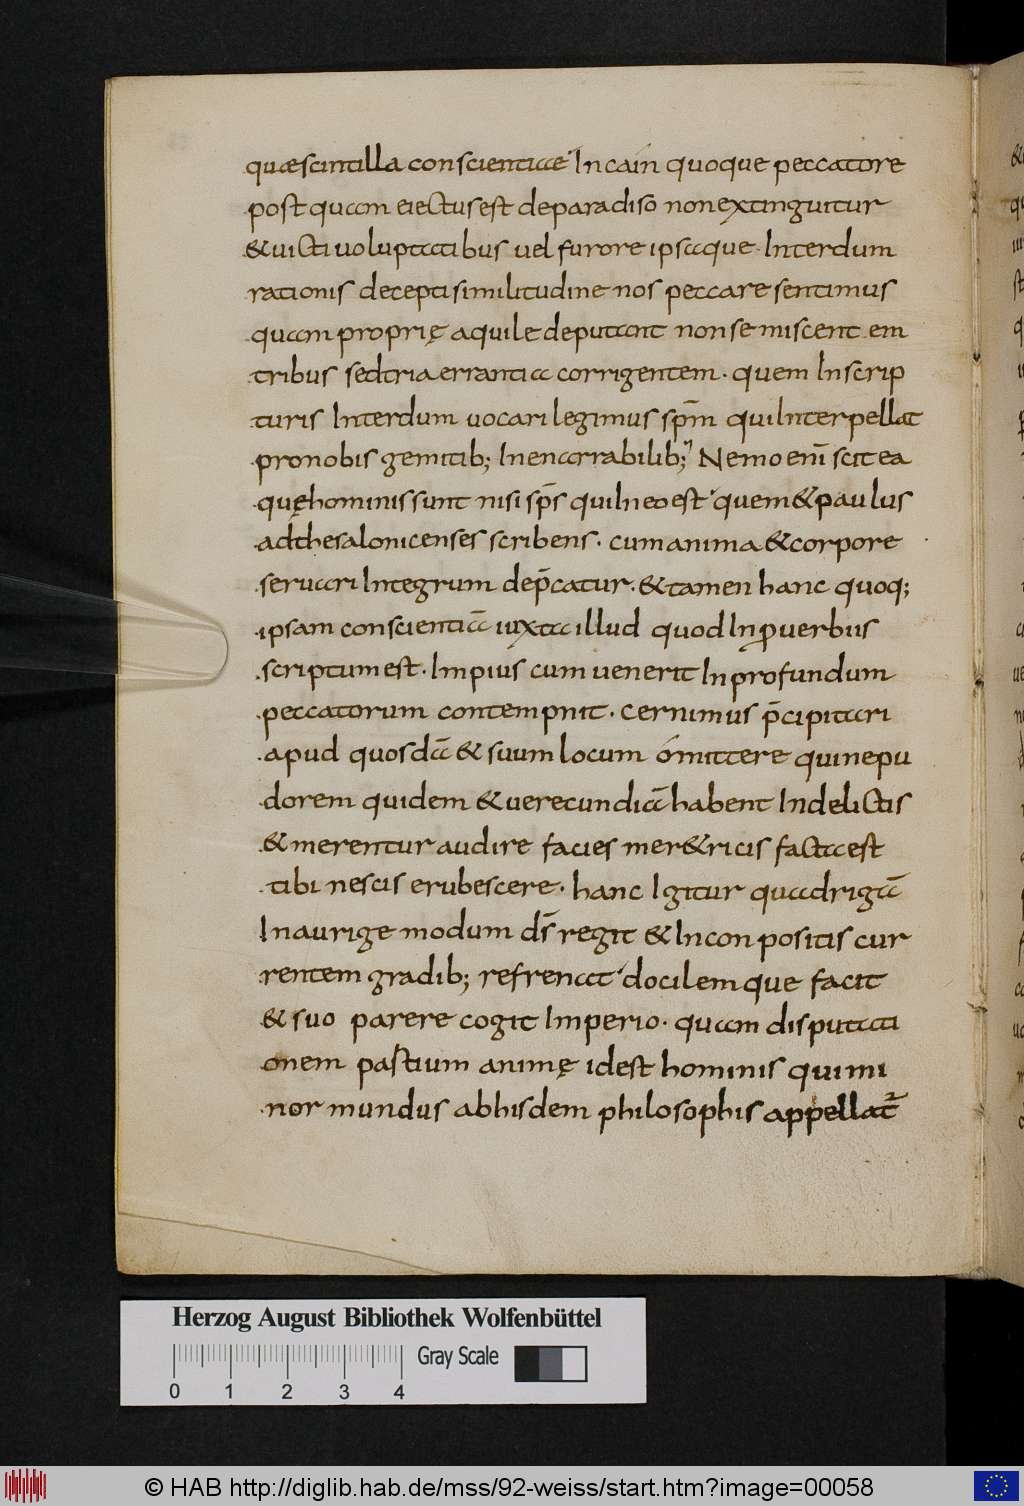 quæ scintilla conscientiae In cain quoque peccatore
post quam eiectus est deparadiso non extinguitur
& uicti uoluptatibus uel furore ipsaque. Interdum
rationis decepti similitudine nos peccare sentimus
quam proprię aquile deputant non se miscentem
tribus sed tria errantia corrigentem. quem Inscrip
turis Interdum uocari legimus sp̄m qui Interpellat
pronobis gemitib; Inenarrabilib; Nemo enī scit ea
quę hominis sunt nisi sp̄s qui In eo est quem & paulus
ad thesalonicenses scribens. cum anima & corpore
seruari Integrum dep̄catur. & tamen hanc quoq;
ipsam conscientiā iuxta illud quod In ꝓuerbiis
scriptum est. Impius cum uenerit In profundum
peccatorum contempnit. cernimus p̄cipitari
apud quosdā & suum locum omittere qui nepu
dorem quidem & uerecundiā habent In delictis
& merentur audire facies mer&ricis facta est
tibi nescis erubescere. hanc Igitur quadrigā
In aurige modum ds̄ regit & Inconpositis cur
rentem gradib; refrenat docilemque facit
& suo parere cogit Imperio. quam disputati
onem pastium animę idest hominis qui mi
nor mundus abhisdem philosophis appellat᷑
Herzog August Bibliothek Wolfenbüttel
Gray Scale
0 1 2 3 4
© HAB http://diglib.hab.de/mss/92-weiss/start.htm?image=00058